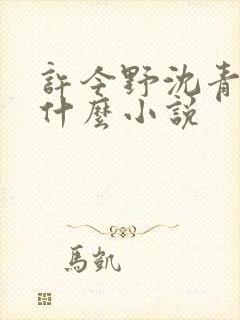 許今野沈青
什麼小説
馬凱